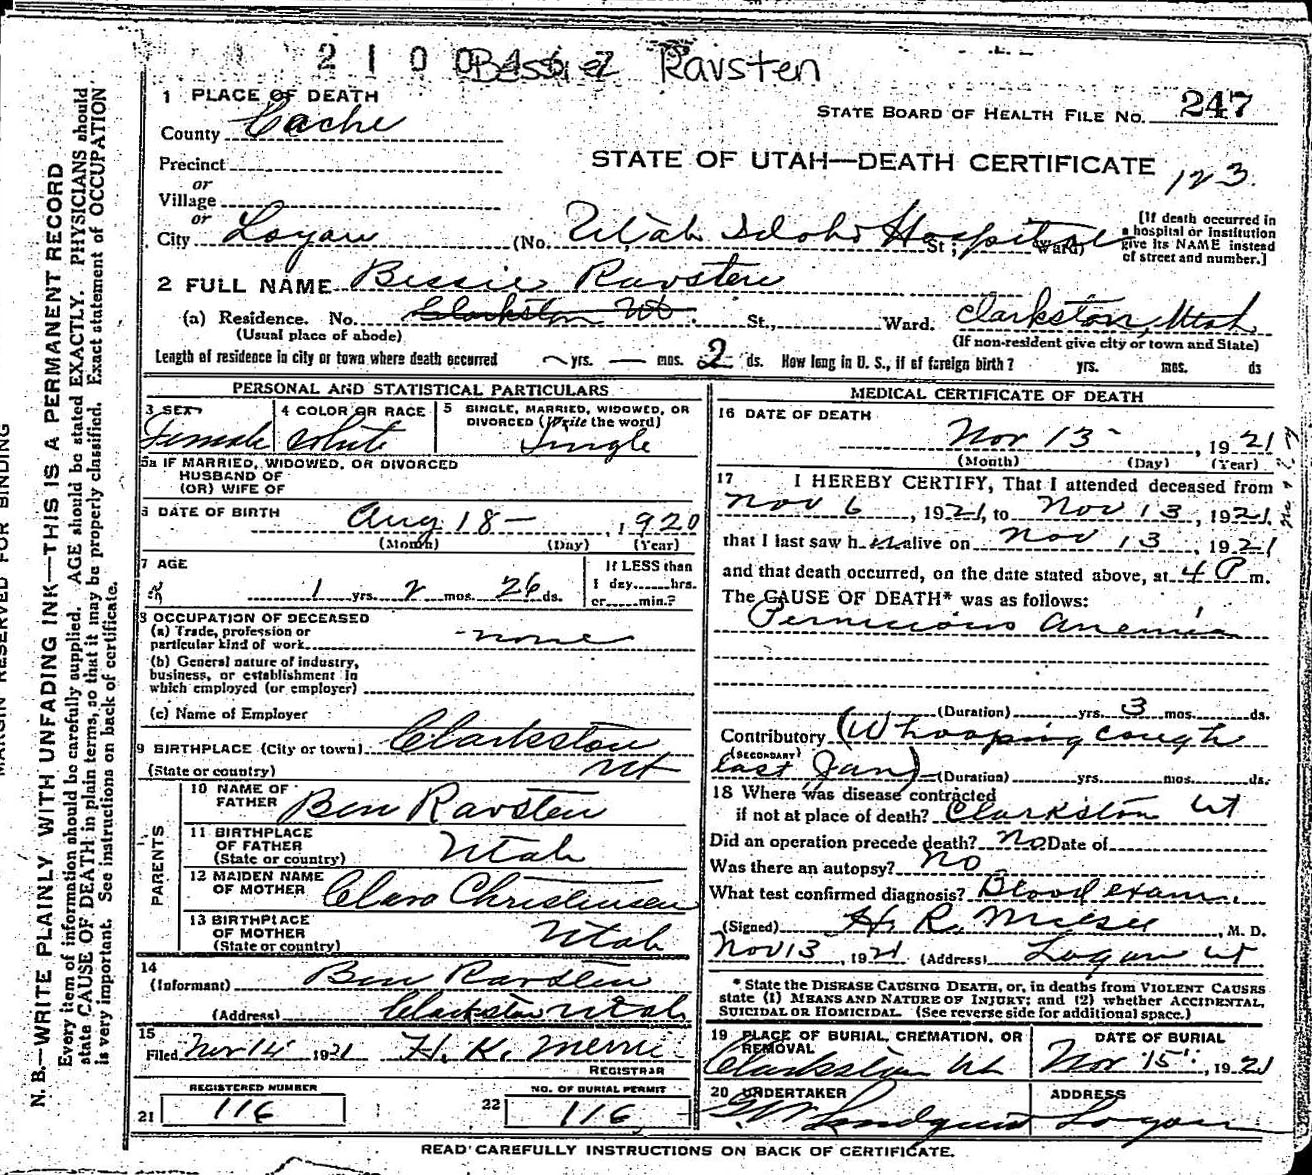 2 1 0 0 4 6 7
Bessie Ravsten
1 PLACE OF DEATH
STATE BOARD OF HEALTH FILE NO. 247
County Cache
STATE OF UTAH—DEATH CERTIFICATE
123.
Precinct
or
Village
or
City Logan (No. Utah Idaho Hospital St; Ward)
[If death occurred in
a hospital or institution
give its NAME instead
of street and number.]
2 FULL NAME Bessie Ravsten
(a) Residence. No. Clarkston Ut. St., Ward. Clarkston, Utah
(Usual place of abode) (If non-resident give city or town and State)
Length of residence in city or town where death occurred — yrs. — mos. 2 ds. How long in U. S., if of foreign birth? yrs. mos. ds
PERSONAL AND STATISTICAL PARTICULARS
3 SEX Female
4 COLOR OR RACE White
5 SINGLE, MARRIED, WIDOWED, OR
DIVORCED (Write the word)
Single
5a IF MARRIED, WIDOWED, OR DIVORCED
HUSBAND OF
(OR) WIFE OF
6 DATE OF BIRTH Aug 18 – , 1920
(Month) (Day) (Year)
7 AGE
1 yrs. 2 mos. 26 ds.
If LESS than
1 day hrs.
or min.?
8 OCCUPATION OF DECEASED
(a) Trade, profession or
particular kind of work none
(b) General nature of industry,
business, or establishment in
which employed (or employer)
(c) Name of Employer
9 BIRTHPLACE (City or town) Clarkston
(State or country) Ut
PARENTS
10 NAME OF
FATHER Ben Ravsten
11 BIRTHPLACE
OF FATHER
(State or country) Utah
12 MAIDEN NAME
OF MOTHER Clara Christensen
13 BIRTHPLACE
OF MOTHER
(State or country) Utah
14
(Informant) Ben Ravsten
(Address) Clarkston Utah
15
Filed Nov 14 1921 H. K. Merrill
REGISTRAR
REGISTERED NUMBER
21 116
NO. OF BURIAL PERMIT
22 116
MEDICAL CERTIFICATE OF DEATH
16 DATE OF DEATH
Nov 13 - , 1921
(Month) (Day) (Year)
17 I HEREBY CERTIFY, That I attended deceased from
Nov 6 , 1921, to Nov 13 , 1921,
that I last saw her alive on Nov 13 , 1921
and that death occurred, on the date stated above, at 4 P m.
The CAUSE OF DEATH* was as follows:
Pernicious Anemia
(Duration) yrs. 3 mos. ds.
Contributory (Whooping cough
(SECONDARY)
last Jan) (Duration) yrs. mos. ds.
18 Where was disease contracted
if not at place of death? Clarkston Ut
Did an operation precede death? No Date of
Was there an autopsy? No
What test confirmed diagnosis? Blood exam.
(Signed) H. R. , M. D.
Nov 13 , 1921 (Address) Logan Ut
* State the DISEASE CAUSING DEATH, or, in deaths from VIOLENT CAUSES
state (1) MEANS AND NATURE OF INJURY; and (2) whether ACCIDENTAL,
SUICIDAL OR HOMICIDAL. (See reverse side for additional space.)
19 PLACE OF BURIAL, CREMATION, OR
REMOVAL
Clarkston Ut
DATE OF BURIAL
Nov 15 , 1921
20 UNDERTAKER
G W Lindquist
ADDRESS
Logan
READ CAREFULLY INSTRUCTIONS ON BACK OF CERTIFICATE.
MARGIN RESERVED FOR BINDING
N. B.—WRITE PLAINLY WITH UNFADING INK—THIS IS A PERMANENT RECORD
Every item of information should be carefully supplied. AGE should be stated EXACTLY. PHYSICIANS should
state CAUSE OF DEATH in plain terms, so that it may be properly classified. Exact statement of OCCUPATION
is very important. See instructions on back of certificate.